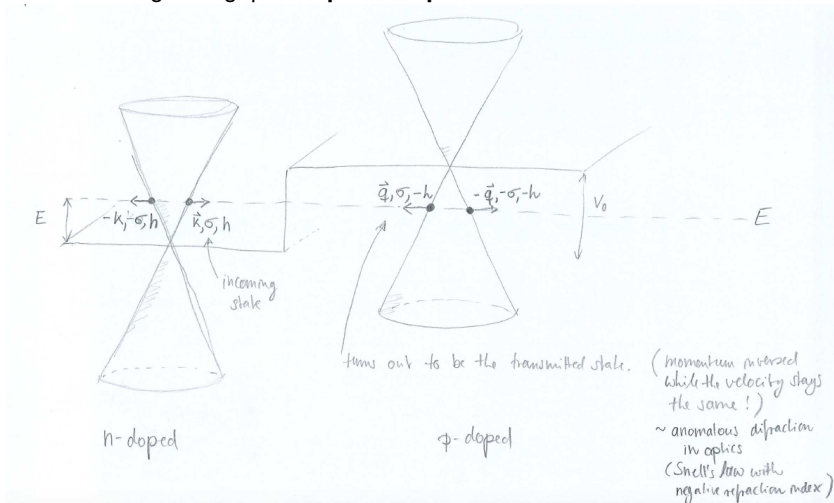 E
-k, -σ, h
k⃗, σ, h
incoming
state
n-doped
q⃗, σ, -h
-q⃗, -σ, -h
V₀
E
turns out to be the transmitted state.
(momentum inversed
while the velocity stays
the same!)
~ anomalous difraction
in optics
(Snell's law with
negative refraction index)
p-doped